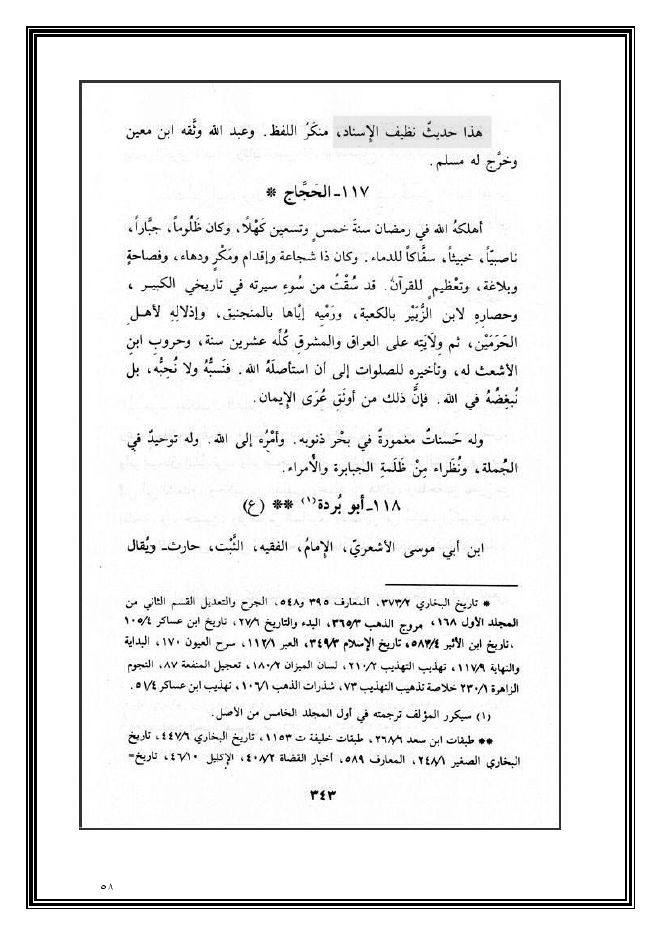 هذا حديثٌ نظيف الإسناد، منكَرُ اللفظ. وعبد الله وثَّقه ابن معين
وخرَّج له مسلم.
١١٧ـ الحَجَّاج *
أهلكهُ الله في رمضان سنةَ خمسٍ وتسعين كَهْلًا، وكان ظَلُوماً، جبَّاراً،
ناصبيّاً، خبيثاً، سفَّاكاً للدماء. وكان ذا شجاعة وإقدام ومَكْرٍ ودهاء، وفصاحةٍ
وبلاغة، وتعْظيمٍ للقرآن. قد سُقْتُ من سُوءِ سيرته في تاريخي الكبير ،
وحصاره لابن الزُّبَيْر بالكعبة، ورَمْيِه إيَّاها بالمنجنيق، وإذلالِهِ لأهل
الحَرَمَيْن، ثم ولَايَتِه على العراق والمشرقِ كُلِّه عشرين سنة، وحروبِ ابنِ
الأشعث له، وتأخيرِه للصلوات إلى أن استأصلَهُ الله. فنَسبُّهُ ولا نُحِبُّه، بل
نُبغِضُهُ في الله. فإنَّ ذلك من أوثَقِ عُرَى الإيمان.
وله حَسناتٌ مغمورةٌ في بحْرِ ذنوبه. وأمْرُه إلى الله. وله توحيدٌ في
الجُملة، ونُظَراء مِنْ ظَلَمةِ الجبابرة والأمراء.
١١٨ـ أبو بُردة (١) ** (ع)
ابن أبي موسى الأشعريّ، الإمامُ، الفقيه، الثَّبْت، حارث ـ ويُقال
* تاريخ البخاري ٣٧٣/٢، المعارف ٣٩٥ و٥٤٨، الجرح والتعديل القسم الثاني من
المجلد الأول ١٦٨، مروج الذهب ٣٦٥/٣، البدء والتاريخ ٢٧/٦، تاريخ ابن عساكر ١٠٥/٤
،تاريخ ابن الأثير ٥٨٣/٤، تاريخ الإسلام ٣٤٩/٣، العبر ١١٢/١، سرح العيون ١٧٠، البداية
والنهاية ١١٧/٩، تهذيب التهذيب ٢١٠/٢، لسان الميزان ١٨٠/٢، تعجيل المنفعة ٨٧، النجوم
الزاهرة ٢٣٠/١ خلاصة تذهيب التهذيب ٧٣، شذرات الذهب ١٠٦/١، تهذيب ابن عساكر ٥١/٤.
(١) سيكرر المؤلف ترجمته في أول المجلد الخامس من الأصل.
** طبقات ابن سعد ٢٦٨/٦، طبقات خليفة ت ١١٥٣، تاريخ البخاري ٤٤٧/٦، تاريخ
البخاري الصغير ٢٤٨/١، المعارف ٥٨٩، أخبار القضاة ٤٠٨/٢، الإكليل ٤٦/١٠، تاريخ=
٣٤٣
٥٨